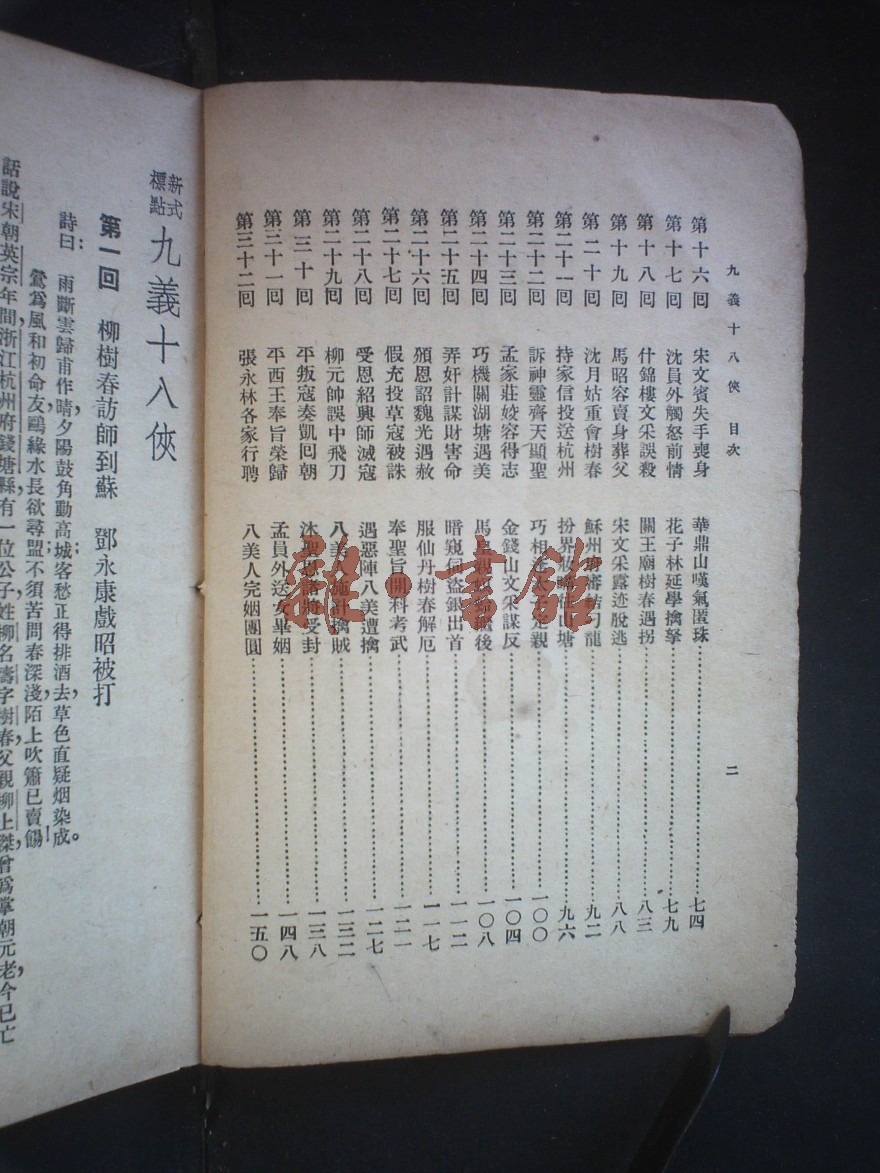 九義十八俠目次 二
第十六回 宋文賓失手喪身 華鼎山嘆氣匿珠 七四
第十七回 沈員外觸怒前情 花子林延學擒拏 七九
第十八回 什錦樓文采誤殺 關王廟樹春遇拐 八三
第十九回 馬昭容賣身葬父 宋文采露迹脫逃 八八
第二十回 沈月姑重會樹春 蘇州 龍 九二
第二十一回 持家信投送杭州 扮界 山塘 九六
第二十二回 訴神靈齊天顯聖 巧相 定親 一〇〇
第二十三回 孟家莊姣容得志 金錢山文采謀反 一〇四
第二十四回 巧機關湖塘遇美 馬 後 一〇八
第二十五回 弄奸計謀財害命 暗窺伺盜銀出首 一一二
第二十六回 頒恩詔魏光遇赦 服仙丹樹春解厄 一一七
第二十七回 假充投草寇被誅 奉聖旨開科考武 一二一
第二十八回 受恩紹興師滅寇 遇惡陣八美遭擒 一二七
第二十九回 柳元帥誤中飛刀 八美人施計擒賊 一三二
第三十回 平叛寇奏凱回朝 沐聖恩 受封 一三八
第三十一回 平西王奉旨榮歸 孟員外送女畢姻 一四八
第三十二回 張永林各家行聘 八美人完姻團圓 一五〇
雜·書館
新式標點 九義十八俠
第一回 柳樹春訪師到蘇 鄧永康戲昭被打
詩曰：雨斷雲歸甫作晴，夕陽鼓角動高城；客愁正得排酒去，草色直疑烟染成。
鶯爲風和初命友，鷗緣水長欲尋盟；不須苦問春深淺，陌上吹簫已賣餳！
話說宋朝英宗年間，浙江杭州府錢塘縣，有一位公子，姓柳名濤字樹春，父親柳上傑，曾爲掌朝元老，今已亡